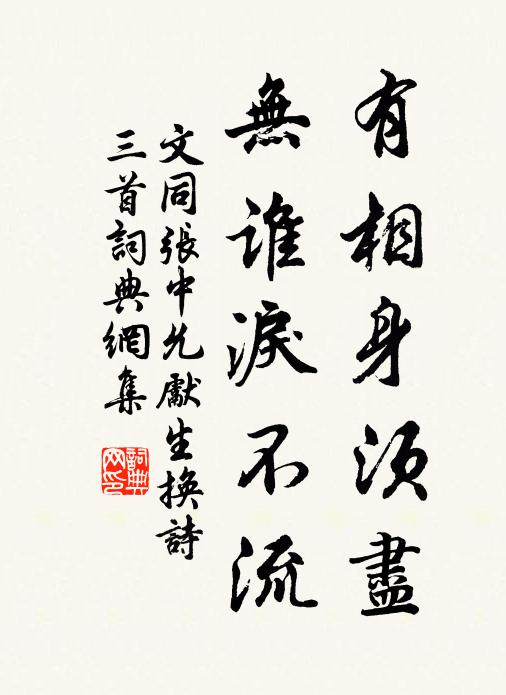 有相身須盡
無誰淚不流
文同張中允獻生換詩
三首詞典網集
詞典網印